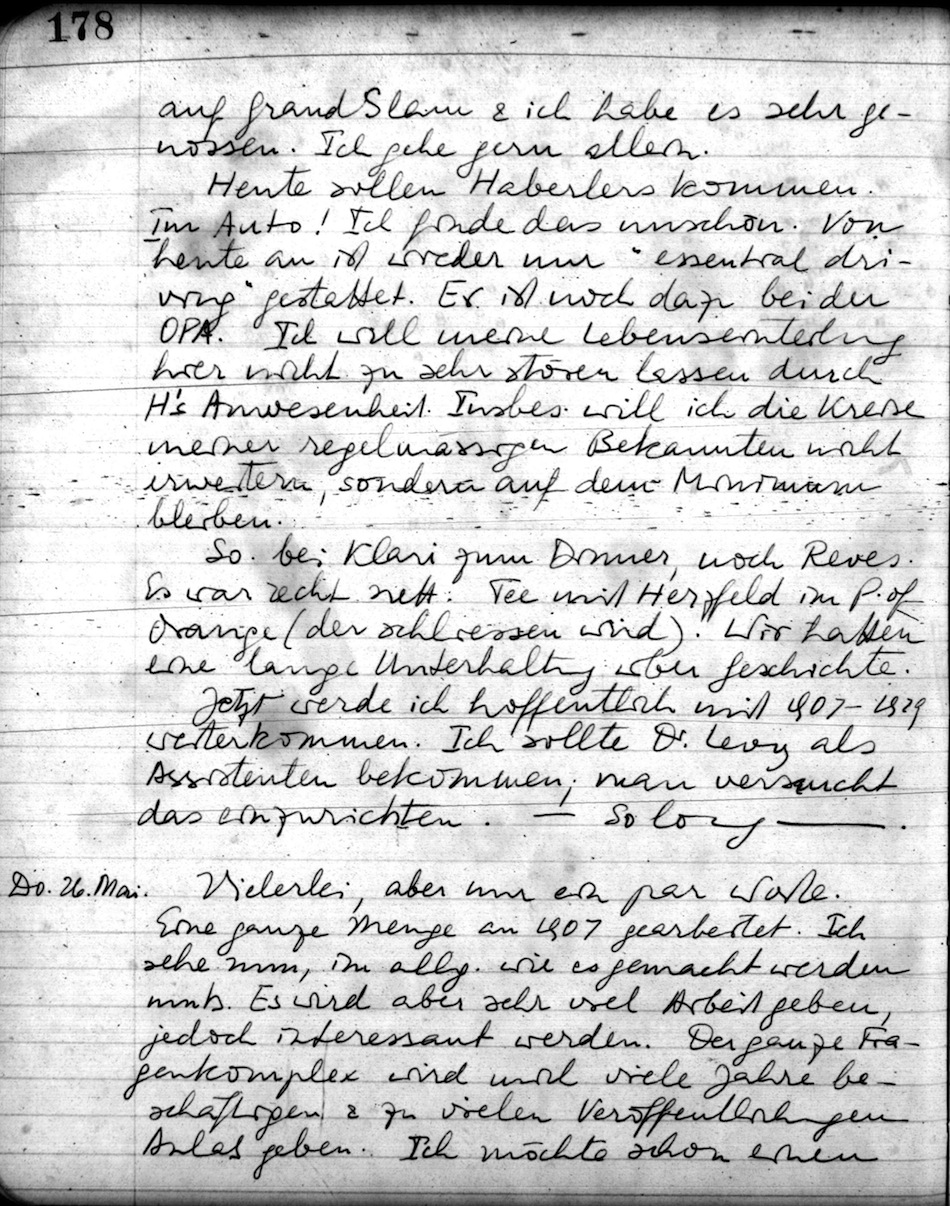 178
auf Grand Slam & ich habe es sehr ge-
nossen. Ich gehe gern allein.
Heute sollen Haberlers kommen.
Im Auto! Ich finde das unschön. Von
heute an ist wieder nur "essential dri-
ving" gestattet. Er ist noch dazu bei der
OPA. Ich will meine Lebenseinteilung
hier nicht zu sehr stören lassen durch
H's Anwesenheit. Insbes. will ich die Kreise
meiner regelmässigen Bekannten nicht
erweitern, sondern auf dem Minimum
bleiben.
So. bei Klari zum Dinner, noch Reves.
Es war recht nett. Tee mit Herzfeld im P. of
Orange (der schliessen wird). Wir hatten
eine lange Unterhaltung über Geschichte.
Jetzt werde ich hoffentlich mit 1907–1929
weiterkommen. Ich sollte Dr. Levy als
Assistenten bekommen; man versucht
das einzurichten. — So long —.
Do. 26. Mai. Vielerlei, aber nur ein par Worte.
Eine ganze Menge an 1907 gearbeitet. Ich
sehe nun, im allg. wie es gemacht werden
muß. Es wird aber sehr viel Arbeit geben,
jedoch interessant werden. Der ganze Fra-
genkomplex wird mich viele Jahre be-
schäftigen & zu vielen Veröffentlichungen
Anlaß geben. Ich möchte schon einen